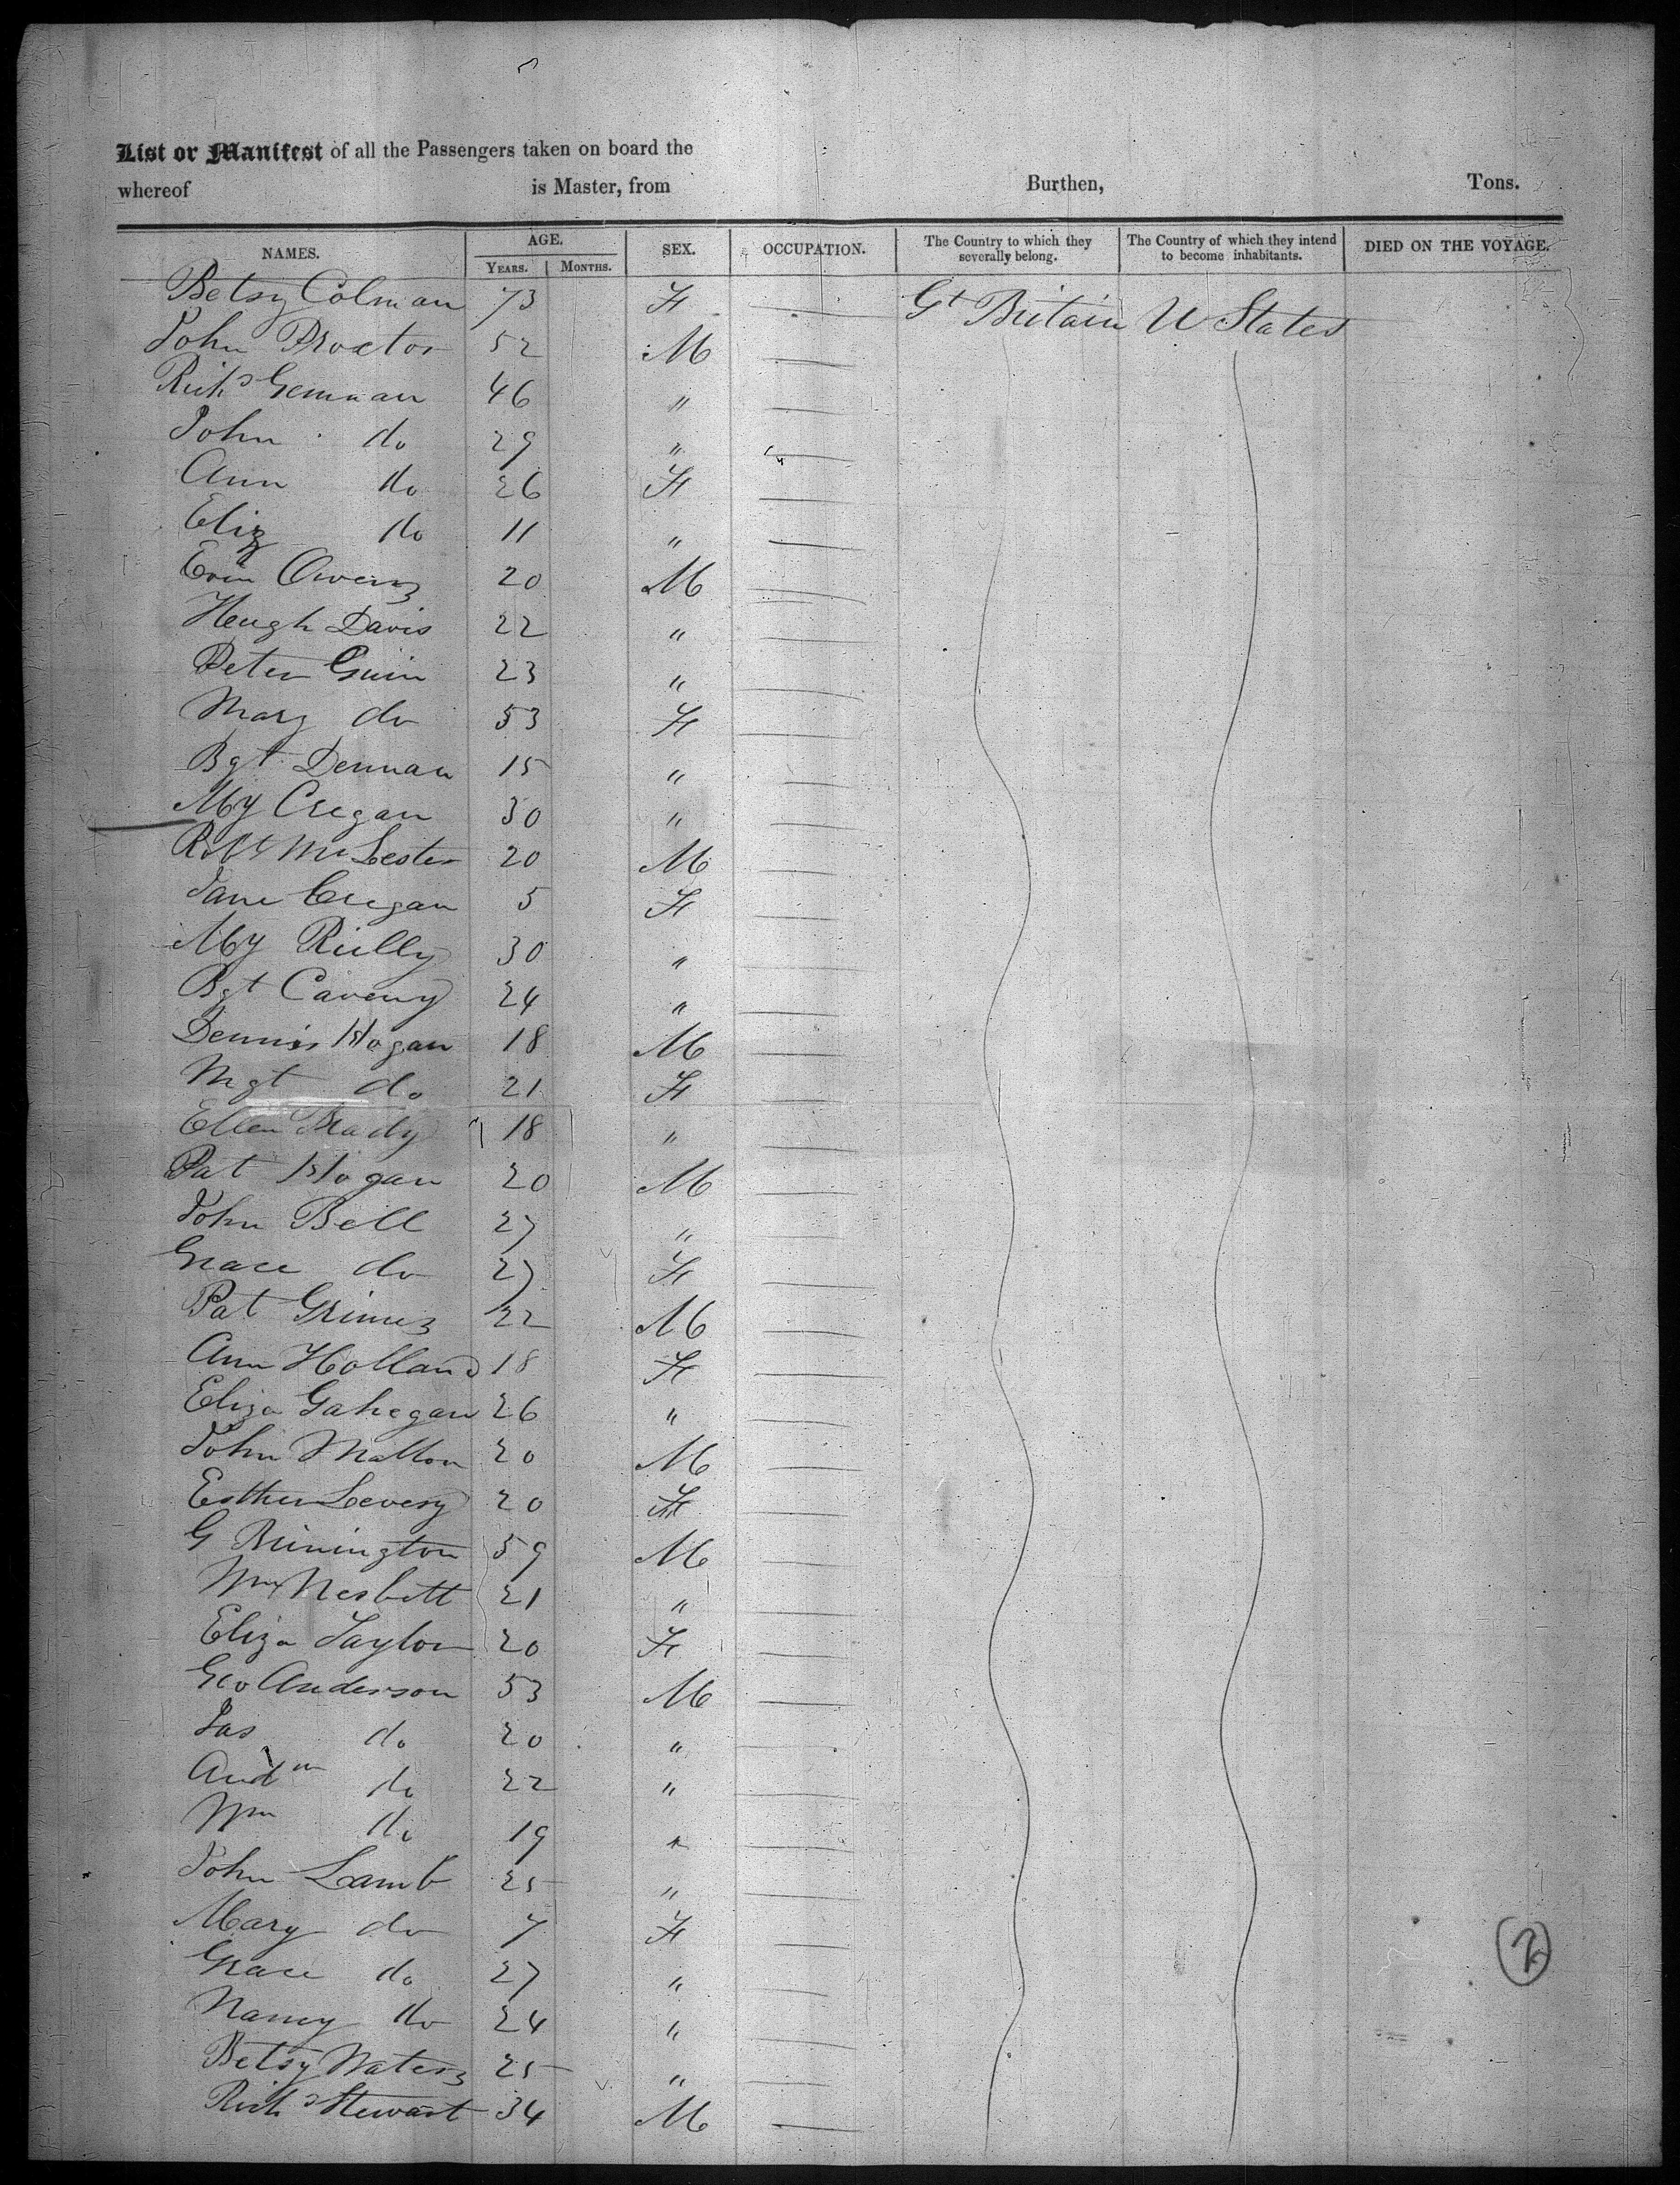 List or Manifest of all the Passengers taken on board the
whereof is Master, from Burthen, Tons.
NAMES. AGE. SEX. OCCUPATION. The Country to which they severally belong. The Country of which they intend to become inhabitants. DIED ON THE VOYAGE.
YEARS. MONTHS.
Betsy Colman 73 F Gt Britain U States
John Proctor 52 M
Richd Gennan 46 "
John do 29 "
Ann do 26 F
Eliz do 11 "
Evin Owens 20 M
Heugh Davis 22 "
Peter Guin 23 "
Mary do 53 F
Bgt Dennan 15 "
My Cregan 30 "
Robt McLester 20 M
Jane Cregan 5 F
My Rielly 30 "
Bgt Caveny 24 "
Dennis Hogan 18 M
Mgt do 21 F
Ellen Brady 18 "
Pat Hogan 20 M
John Bell 27 "
Grace do 27 F
Pat Grimes 22 M
Ann Holland 18 F
Eliza Gahegan 26 "
John Mallon 20 M
Esther Levery 20 F
G Binington 59 M
Wm Nesbitt 21 "
Eliza Taylor 20 F
Geo Anderson 53 M
Jas do 20 "
Andw do 22 "
Wm do 19 "
John Lamb 25 "
Mary do 7 F
Grace do 27 "
Nancy do 24 "
Betsy Waters 25 "
Richd Stewart 34 M
2